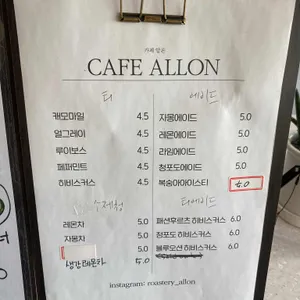 카페 알론
CAFE ALLON
티
캐모마일 4.5
얼그레이 4.5
루이보스 4.5
페퍼민트 4.5
히비스커스 4.5
에이드
자몽에이드 5.0
레몬에이드 5.0
라임에이드 5.0
청포도에이드 5.0
복숭아아이스티 5.0
수제청
레몬차 5.0
자몽차 5.0
생강레몬차 5.0
티에이드
패션후르츠 히비스커스 6.0
청포도 히비스커스 6.0
블루오션 히비스커스 6.0
instagram: roastery_allon